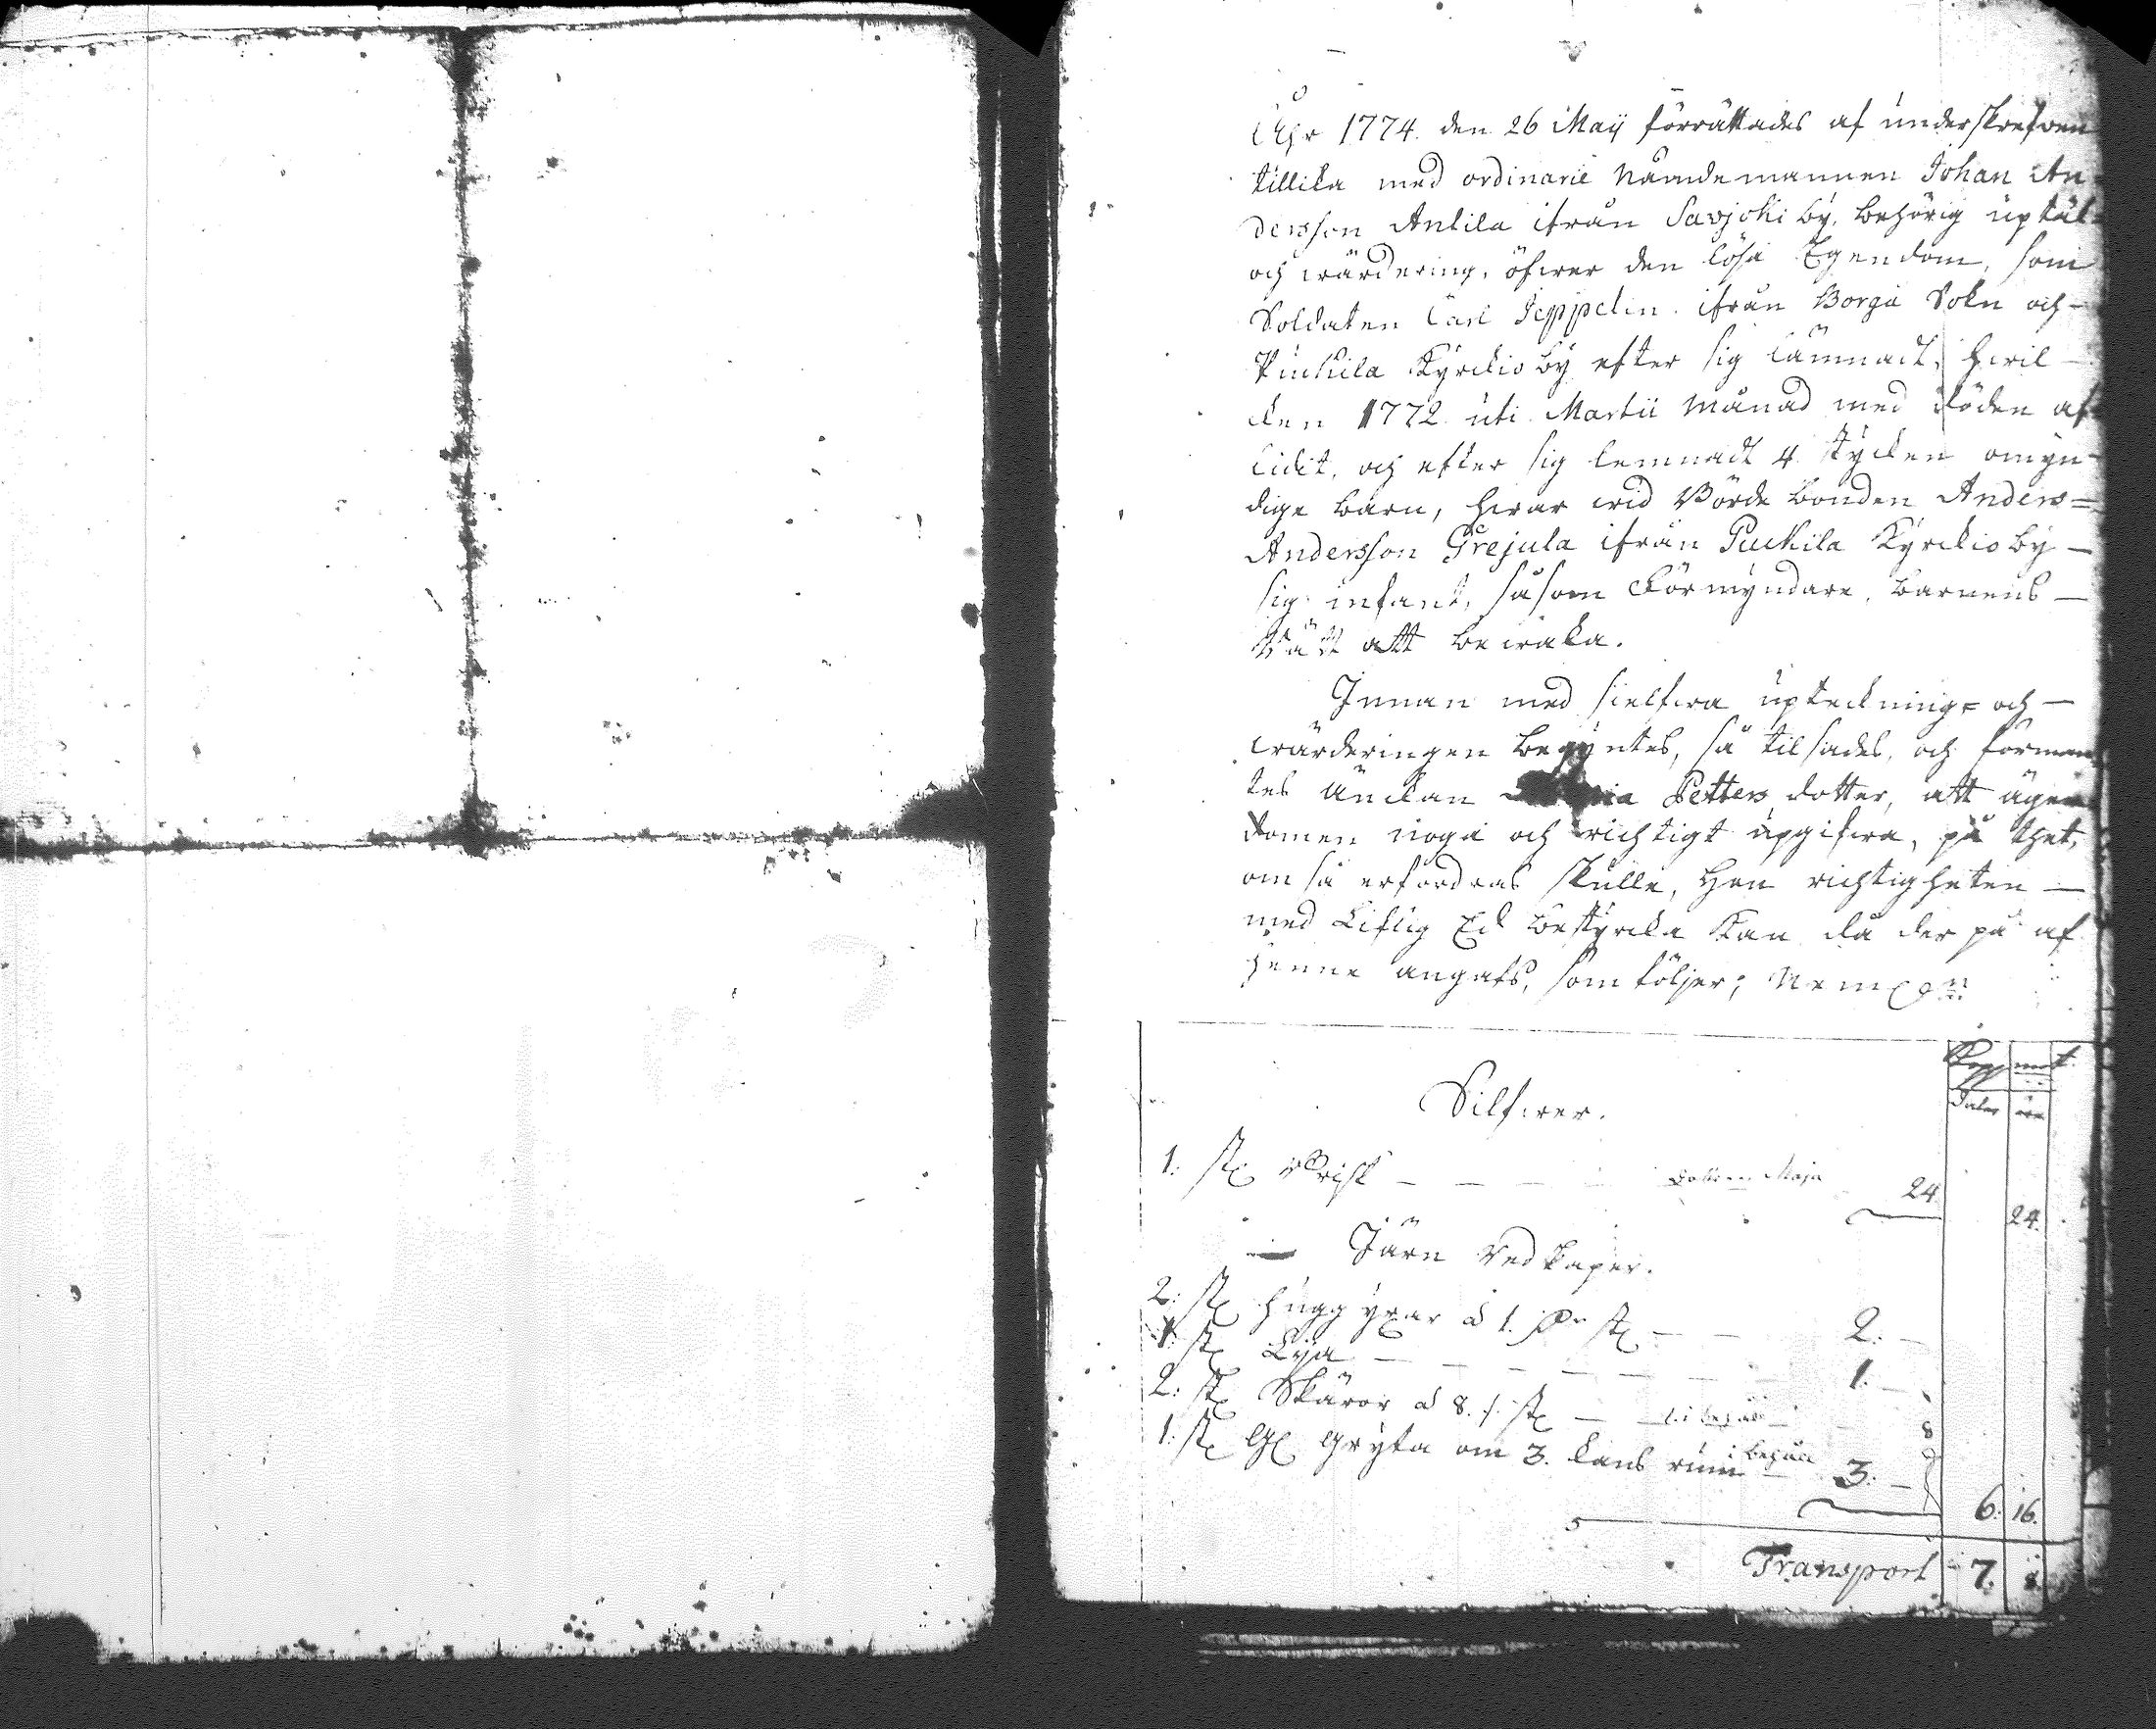 Åhr 1774. den 26 Maij förrättades af underskrefven
tillika med ordinarie Nämndemannen Johan An-
dersson Antila ifrån Savjoki by, behörig uptäk-
och wärdering, öfwer den lösa Egendom, som
Soldaten Carl Jeppelin ifrån Borgå Sokn och
Kyrckio by efter sig lämnadt, hwil-
cken 1772 uti Martii Månad med döden af
lidit, och efter sig lemnadt 4 stycken omyn-
dige barn, hwar wid Börde bonden Anders
Andersson Grejula ifrån Puckila Kyrckio by
sig infant, såsom Förmyndare, barnens
Rätt att bewaka.
Innan med sielfwa upteckning- och
wärderingen begyntes, så tilsades, och förman
tes Änckan Petters dotter, att ägen
domen noga och richtigt upgifwa, på thet,
om så erfordras skulle, Hon richtigheten
med Liflig Ed bestyrcka kan då der på af
henne angafs, som följer; Nemln
Kopp mt
Daler öre
Silfwer.
1: st Brisk Maja 24
24.
Järn Redskaper.
2: st hugg yxar à 1. st 2:
1: st Lija 1.
2: st Skäror à 8. st 16
1: st Gl gryta om 3. kans rum behåll 3:
6: 16.
Transport 7. 8.